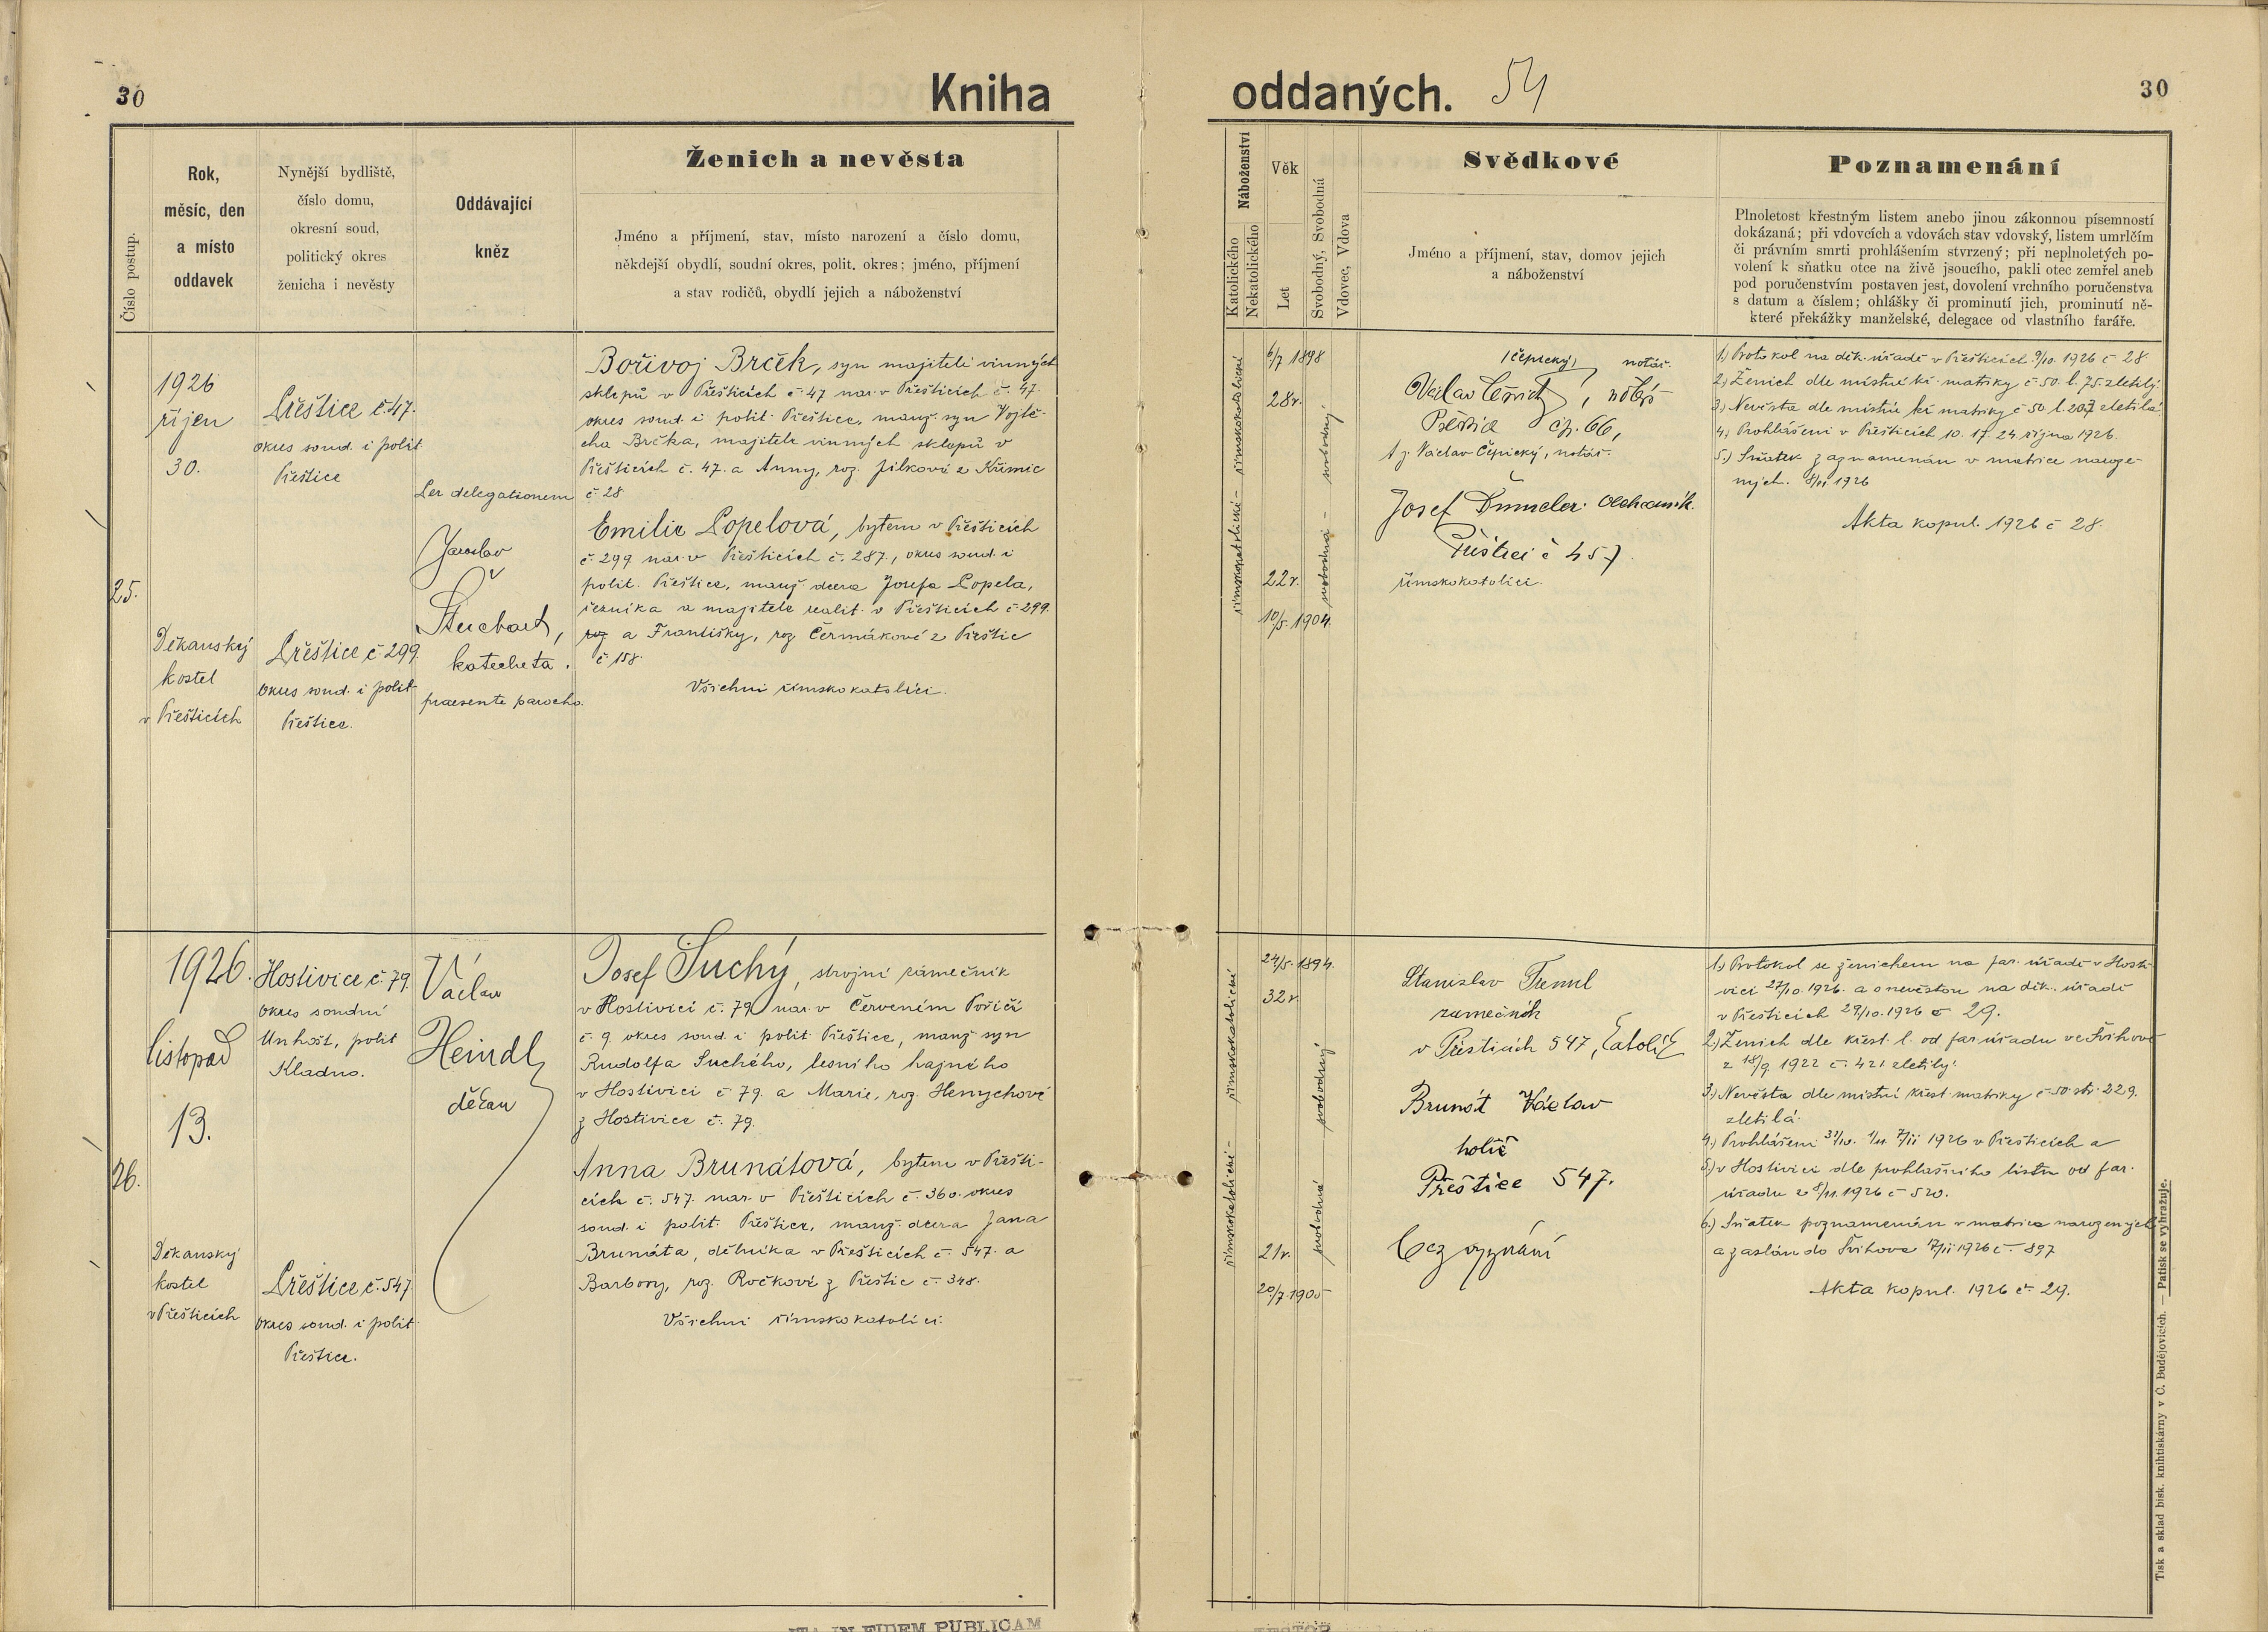 30
Kniha
oddaných.
54
30
Číslo postup.
Rok,
měsíc, den
a místo
oddavek
Nynější bydliště,
číslo domu,
okresní soud,
politický okres
ženicha i nevěsty
Oddávající
kněz
Ženich a nevěsta
Jméno a příjmení, stav, místo narození a číslo domu,
někdejší obydlí, soudní okres, polit. okres; jméno, příjmení
a stav rodičů, obydlí jejich a náboženství
Náboženství
Katolického
Nekatolického
Věk
Let
Svobodný, Svobodná
Vdovec, Vdova
Svědkové
Jméno a příjmení, stav, domov jejich
a náboženství
Poznamenání
Plnoletost křestným listem anebo jinou zákonnou písemností
dokázaná; při vdovcích a vdovách stav vdovský, listem umrlčím
či právním smrti prohlášením stvrzený; při neplnoletých po-
volení k sňatku otce na živě jsoucího, pakli otec zemřel aneb
pod poručenstvím postaven jest, dovolení vrchního poručenstva
s datum a číslem; ohlášky či prominutí jich, prominutí ně-
které překážky manželské, delegace od vlastního faráře.
25.
1926
říjen
30.
Děkanský
kostel
v Přešticích
Přeštice č. 47.
okres soud. i polit
Přeštice
Přeštice č. 299.
okres soud. i polit
Přeštice.
Per delegationem
Jaroslav
katecheta.
praesente parocho.
Bořivoj Brček, syn majitele vinných
sklepů v Přešticích č. 47 nar. v Přešticích č. 47.
okres soud. i polit. Přeštice, manž. syn Vojtě-
cha Brčka, majitele vinných sklepů v
Přešticích č. 47. a Anny, roz. Jílkové z Křimic
č. 28
Emilie Popelová, bytem v Přešticích
č. 299 nar. v Přešticích č. 287., okres soud. i
polit. Přeštice, manž. dcera Josefa Popela,
řezníka a majitele realit. v Přešticích č 299.
roz a Františky, roz Čermákové z Přeštic
č. 158.
Všichni římskokatolíci.
římskokatolické - římskokatolické
6/7 1898
28r.
22r.
10/5. 1904.
svobodná - svobodný
/čepický/ notář.
Václav Čepický, notář
Přeštice čp. 66,
t. j. Václav Čepický, notář.
Josef
Přeštice č 457
římskokatolíci.
1.) Protokol na děk. úřadě v Přešticích 9/10. 1926 č 28
2.) Ženich dle místní kř. matriky č. 50. l. 75. zletilý
3.) Nevěsta dle místní kř matriky č 50. l. 207 zletilá
4.) Prohlášeni v Přešticích 10. 17. 24. října 1926.
5.) Sňatek zaznamenán v matrice naroze-
ných. 8/11 1926
Akta kopul. 1926 č 28.
26.
1926.
listopad
13.
Děkanský
kostel
v Přešticích
Hostivice č. 79.
okres soudní
Unhošť, polit
Kladno.
Přeštice č. 547
okres soud. i polit
Přeštice.
Václav
Heindl,
děkan
Josef Suchý, strojní zámečník
v Hostivici č. 79 nar. v Červeném Poříčí
č. 9 okres soud. i polit Přeštice, manž syn
Rudolfa Suchého, lesního hajného
v Hostivici č 79. a Marie, roz. Henychové
z Hostivice č. 79.
Anna Brunátová, bytem v Přešti-
cích č. 547. nar. v Přešticích č. 360. okres
soud. i polit. Přeštice, manž. dcera Jana
Brunáta, dělníka v Přešticích č. 547. a
Barbory, roz. Ročkové z Přeštic č. 348.
Všichni římskokatolíci.
římskokatolické - římskokatolické
24/5. 1894.
32r.
21r.
20/7. 1905
svobodná svobodný
Stanislav
zámečník
v Přešticích 547, katolík
Brunát Václav
holič
Přeštice 547.
bez vyznání
1.) Protokol se ženichem na far. úřadě v Hosti-
vici 27/10. 1926. a s nevěstou na děk. úřadě
v Přešticích 29/10. 1926 č 29.
2.) Ženich dle křest. l. od far úřadu ve Švihově
z 18/9 1922 č. 421 zletilý.
3.) Nevěsta dle místní křest. matriky č. 50. str. 229.
zletilá.
4.) Prohlášeni 31/10. 1/11. 7/11 1926 v Přešticích a
5.) v Hostivici dle prohlašního listu od far.
úřadu z 8/11. 1926 č 520.
6.) Sňatek poznamenán v matrice narozených
a zaslán do Švihova 17/11 1926 č. 897
Akta kopul. 1926 č. 29.
Tisk a sklad bisk. knihtiskárny v Č. Budějovicích. — Patisk se vyhražuje.
IN FIDEM PUBLICAM